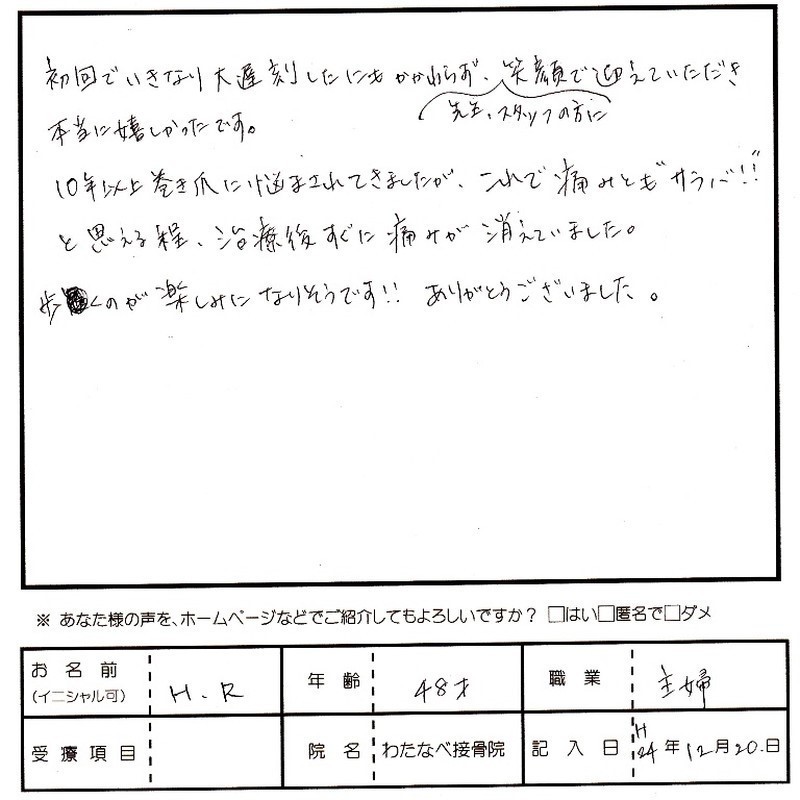 初回でいきなり大遅刻したにもかかわらず、笑顔で迎えていただき
先生、スタッフの方に
本当に嬉しかったです。
10年以上巻き爪に悩まされてきましたが、これで痛みとも"サラバ!!"
と思える程、治療後すぐに痛みが消えていました。
歩くのが楽しみになりそうです!! ありがとうございました。
※ あなた様の声を、ホームページなどでご紹介してもよろしいですか? □はい□匿名で□ダメ
お名前(イニシャル可) H.R 年齢 48才 職業 主婦
受療項目 院名 わたなべ接骨院 記入日 H24年12月20.日